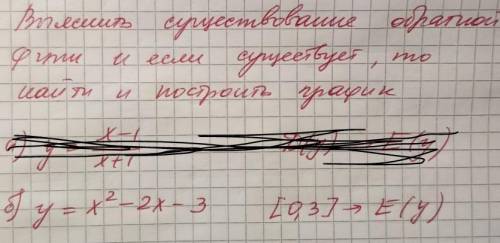 Выяснить существование обратной
ф-ции и если существует, то
найти и построить график
а) y = x-1/x+1 D(y) → E(y)
б) y = x² - 2x - 3 [0,3] → E(y)